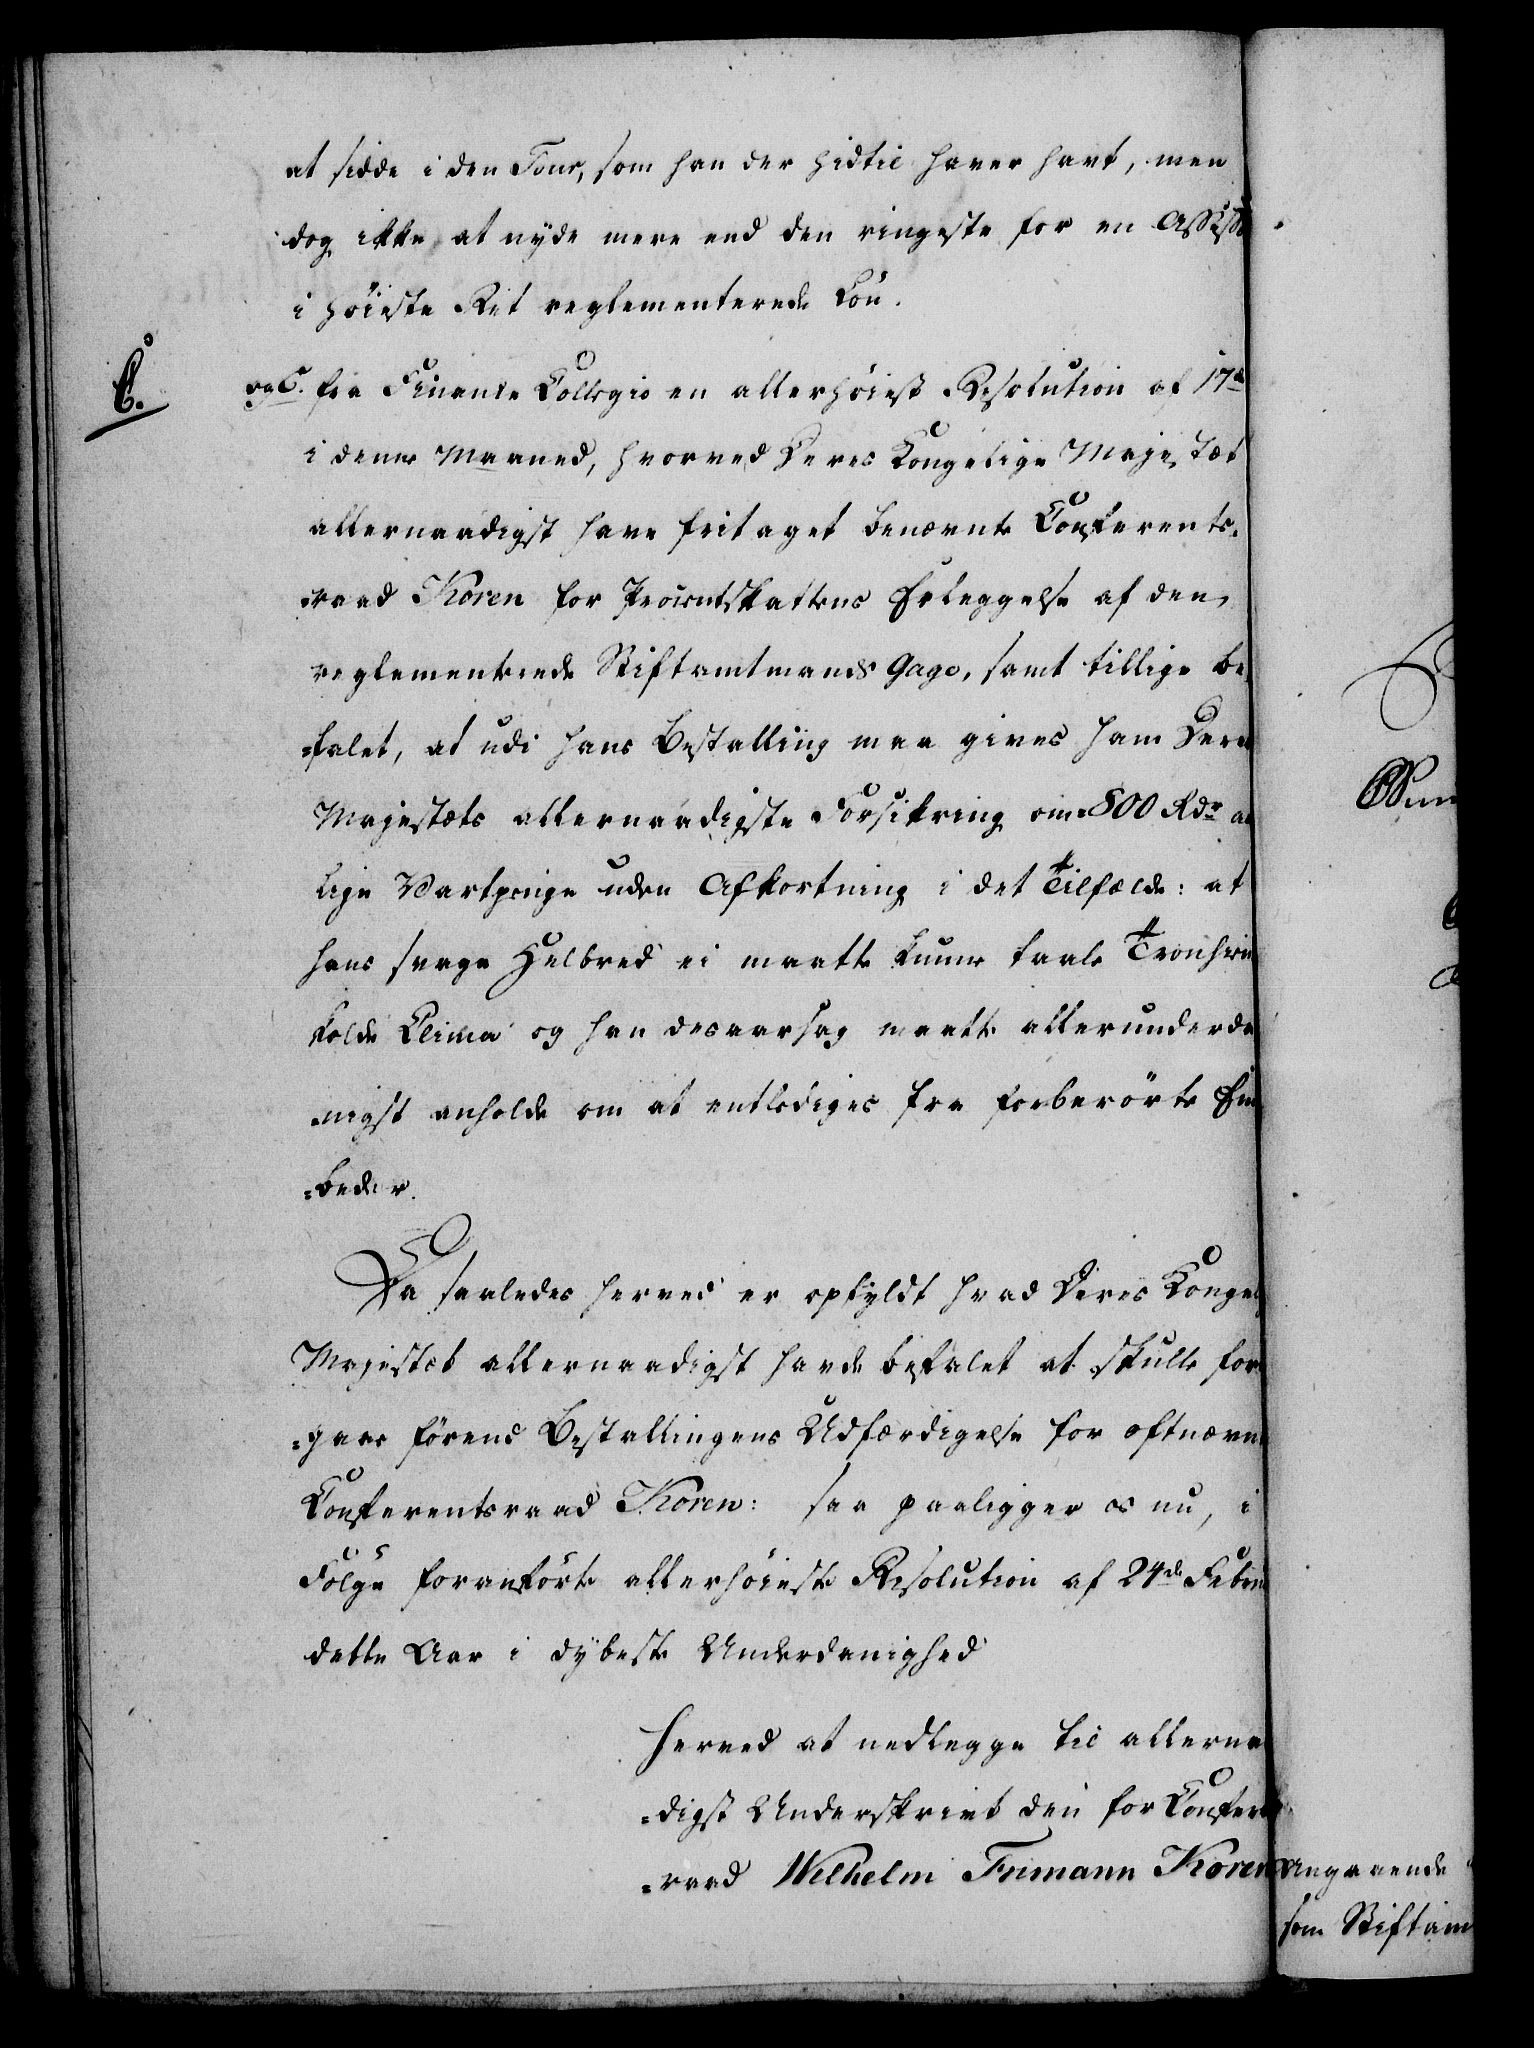 at sidde i den Tour, som han der hidtil haver havt, men
dog ikke at nyde mere end den ringeste for en Assess
i höieste Ret reglementerede Lön.
C.
og C. fra Finants Collegio en allerhöiest Resolution af 17de
i denne Maaned, hvorved Deres Kongelige Majestæt
allernaadigst have fritaget benævnte Conferents-
=raad Koren for Procentskattens Erleggelse af den
reglementerede Stiftamtmands Gage, samt tillige be
=falet, at udi hans Bestalling maa gives ham Deres
Majestæts allernaadigste Forsikring om 800 Rdr aar
lige Vartpenge uden Afkortning i det Tilfælde: at
hans svage Helbred ei maatte kunne taale Tronhiem
kolde Clima og han desaarsag maatte allerunderda
=nigst anholde om at entlediges fra forberörte Em
=beder.
Da saaledes herved er opfyldt hvad Deres Kongel
Majestæt allernaadigst havde befalet at skulle for
=gaae förend Bestallingens Udfærdigelse for oftnævn
Conferentsraad Koren: saa paaligger os nu, i
Fölge foranförte allerhöieste Resolution af 24de Febru
dette Aar i dybeste Underdanighed
herved at nedlegge til allerna
=digst Underskrivt den for Conferents
=raad Wilhelm Frimann Koren
Angaaende
som Stiftam